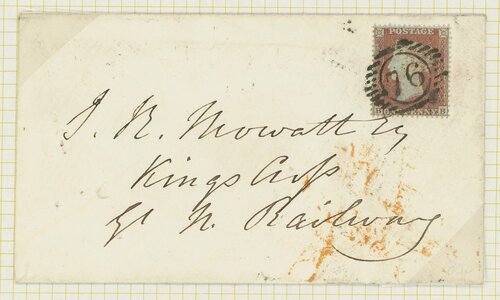 POSTAGE
76
J. R. Mowatt Esq
Kings Cross
Gt N. Railway